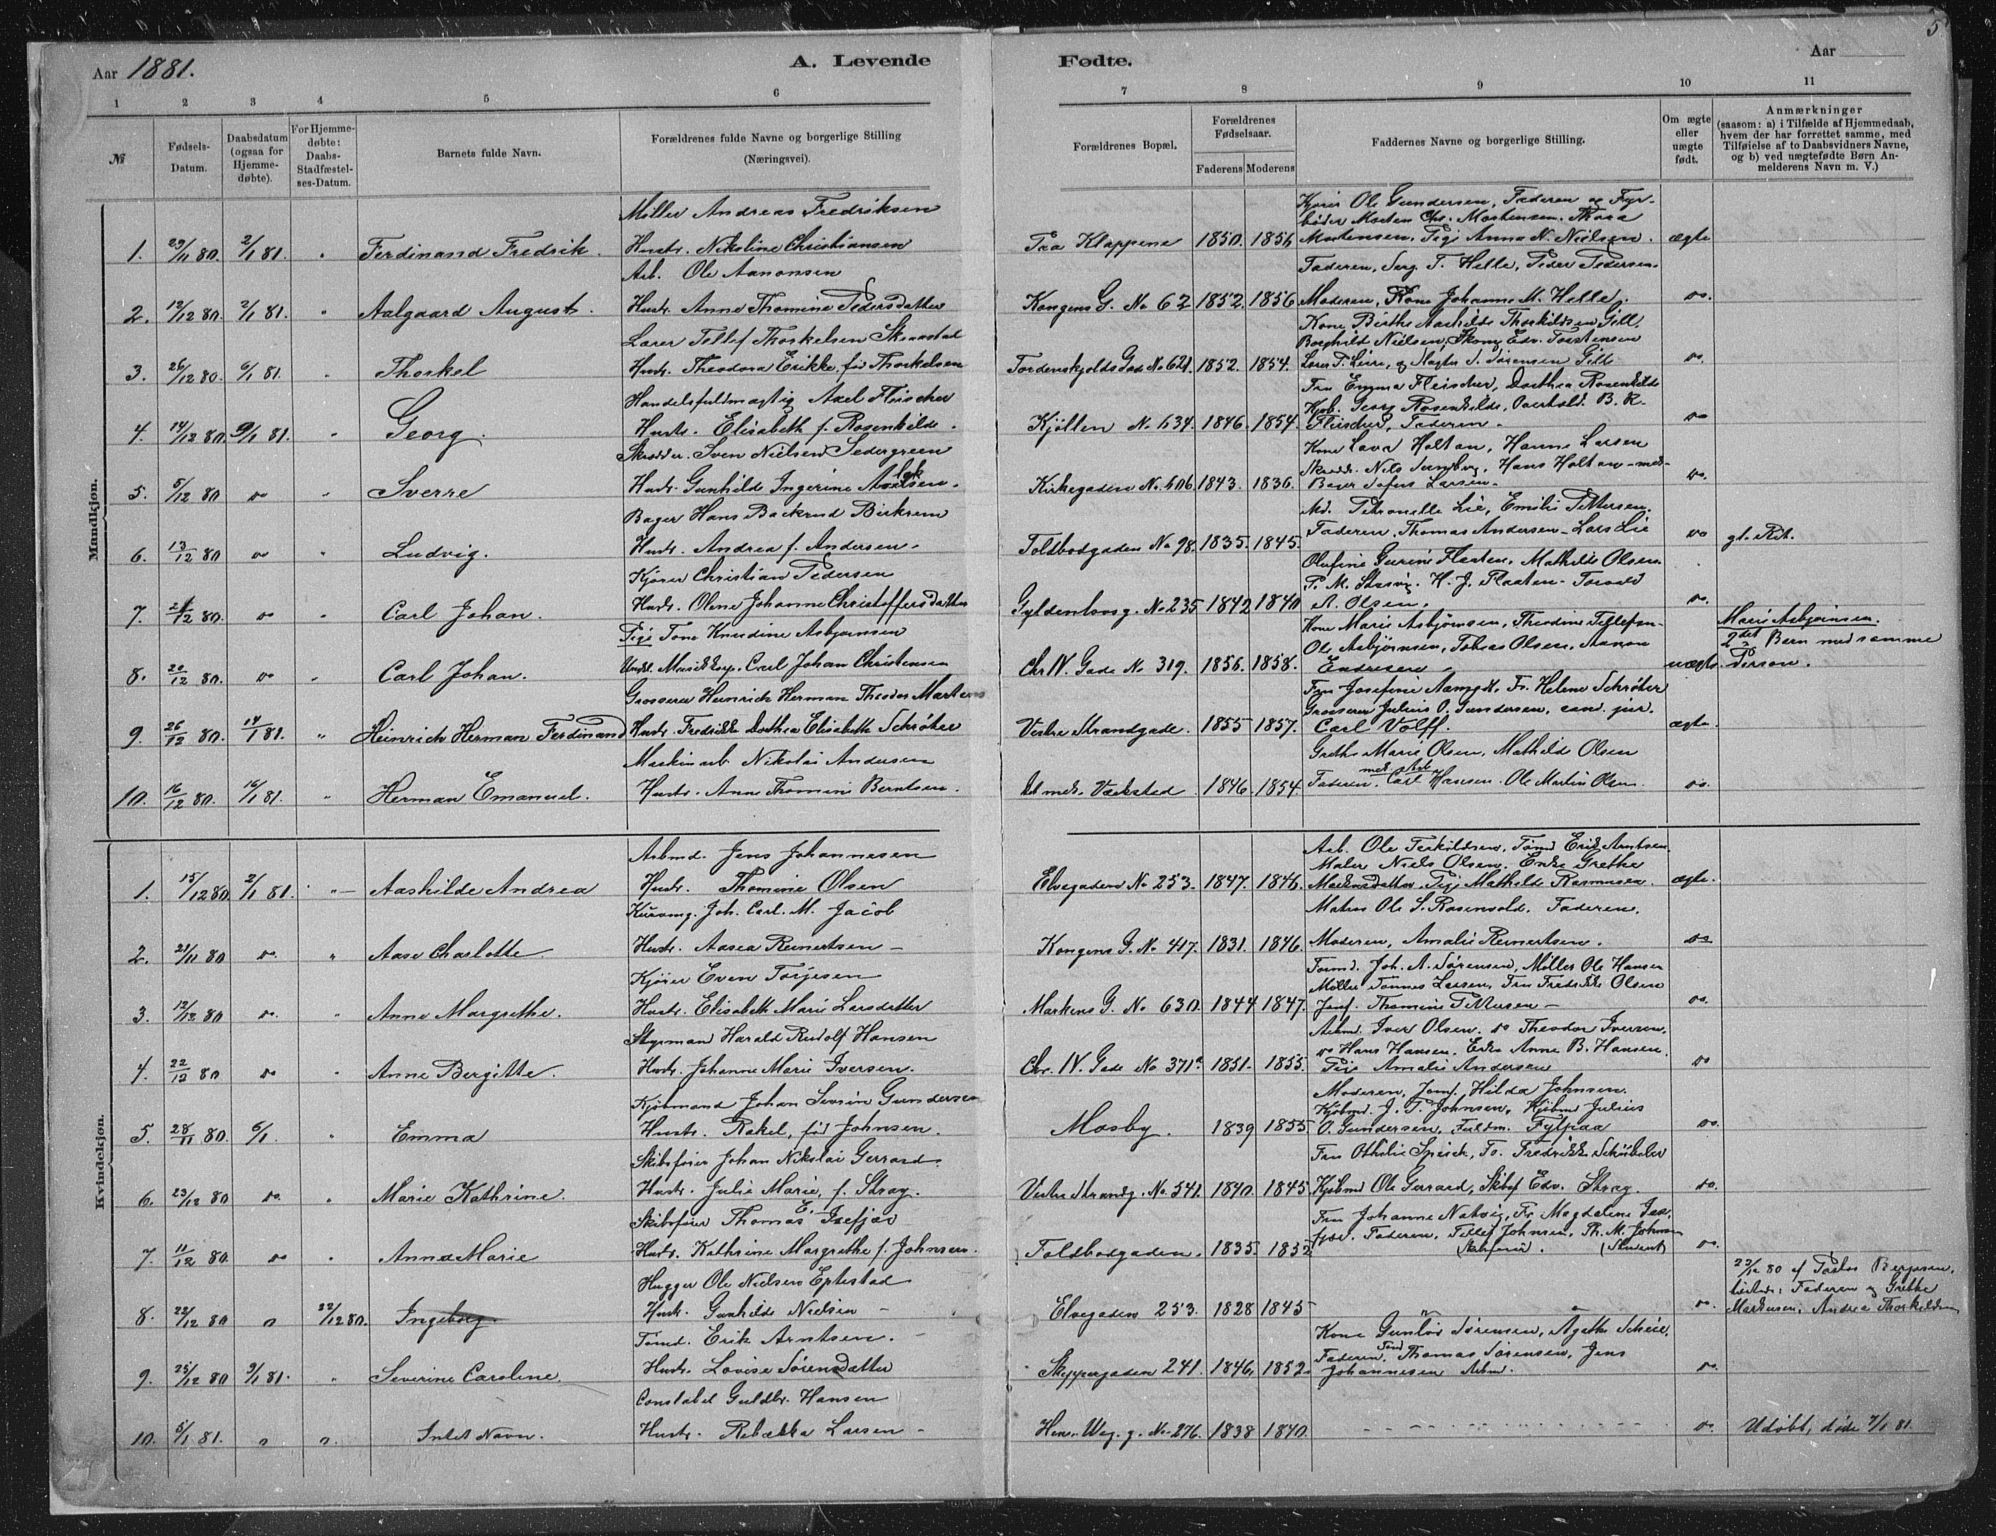 5
Aar 1881.
A. Levende Fødte.
Aar
1 2 3 4 5 6 7 8 9 10 11
№
Fødsels-Datum.
Daabsdatum (ogsaa for Hjemme-døbte).
For Hjemme-døbte: Daabs-Stadfæstel-ses-Datum.
Barnets fulde Navn.
Forældrenes fulde Navne og borgerlige Stilling
(Næringsvei).
Forældrenes Bopæl.
Forældrenes Fødselsaar.
Faderens Moderens
Faddernes Navne og borgerlige Stilling.
Om ægte eller uægte født.
Anmærkninger
(saasom: a) i Tilfælde af Hjemmedaab,
hvem der har forrettet samme, med
Tilføielse af to Daabsvidners Navne,
og b) ved uægtefødte Børn An-
melderens Navn m. V.)
Mandkjøn.
Møller Andreas Fredriksen
Kjører Ole Gundersen, Faderen og Fyr-
bøder Morten Chr. Mortensen. Thora
1. 29/11 80. 2/1 81. " Ferdinand Fredrik. Hustr. Nikoline Christiansen Paa Klappene 1850. 1856 Mortensen. Pige Anna N. Nielsen. ægte
Arb. Ole Aanonsen
Faderen, Serg. T. Helle, Peder Pedersen.
2. 12/12 80. 2/1 81. " Aalgaard August. Hustr. Anne Thomine Pedersdatter Kongens G. No 62 1852. 1856 Moderen, Kone Johanne M. Helle. do.
Lærer Tellef Thorkelsen
Kone Birthe Mathilde Thorkildsen Gill.
Borghild Nielsen, Edv. Torstensen
3. 26/12 80. 6/1 81. " Thorkel Hustr. Theodora Erikke, fød Thorkelsen Tordenskjolds Gade No 621. 1852. 1854. Lærer T. Leire, og S. Sørensen Gill do.
Handelsfuldmægtig Axel Fleischer
Fru Emma Fleischer, Dorthea Rosenkilde
Kjbm. Georg Rosenkilde, Overtold. B. R.
4. 14/12 80. 9/1 81. " Georg. Hustr. Elisabeth f. Rosenkilde. Kjøkken No 634. 1846. 1854. Fleischer, Faderen. do
Skrædder. Sven Nielsen Sedergreen
Kone Lava Holtan, Hanne Larsen
Skrædd. Nils Sundbog, Hans Holtan-med-
5. 5/12 80 do " Sverre Hustr. Gunhilde Ingerine Kirkegaden No 606 1843. 1836. Bager Sofus Larsen. do.
Bager Hans Backrud Birkrem
Md. Petronelle Lie, Emilie Pettersen.
6. 13/12 80 do " Ludvig. Hustr. Andrea f. Andersen. Toldbodgaden No 98. 1835. 1845. Faderen, Thomas Andersen - Lars Lie do gt. Rit.
Kjører Christian Pedersen
Olufine Gurine Flaaten, Mathilde Olsen
P. M. H. J. Flaaten
7. 21/12 80. do " Carl Johan. Hustr. Olene Johanne Christoffersdatter Gyldenløvs g. No 235 1842 1840 A. Olsen. do.
Pige Tone Knudine Asbjørnsen
Kone Marie Asbjørnsen, Theodine Tellefsen
Marie Asbjørnsen.
Ole Asbjørnsen, Tobias Olsen, Aanon
2det Barn med samme
8. 20/12 80. do " Carl Johan. Carl Johan Christensen Chr. IV. Gade No 319. 1856. 1858. Endresen. uægte. Person.
Grosserer Heinrich Herman Theodor Martens
Fru Josefine Aamodt, Fr. Helene Schrøter
Grosserer Julius O. Gundersen, cand. jur.
9. 26/12 80. 14/1 81. " Heinrich Herman Ferdinand Hustr. Fredrikke Dorthea Elisabeth Schrøter Vestre Strandgade. 1855 1857. Carl Wolff. ægte.
Maskinarb. Nikolai Andersen
Grethe Marie Olsen, Mathilde Olsen
10. 16/12 80. 16/1 81. " Herman Emanuel. Hustr. Anne Thomine Berntsen. mek. Værksted. 1846. 1854. Faderen. Carl Hansen. Ole Martin Olsen. do.
Kvindekjøn.
Arbmd. Jens Johannesen
Arb. Ole Terkildsen, Tømd Erik Arntsen.
Maler Niels Olsen. Enke Grethe
1. 15/12 80 2/1 81. " Aashilde Andrea Hustr. Thomine Olsen Elvegaden No 253. 1847. 1846. Mortensdatter. Pige Mathilde Rasmussen. ægte.
Kurvmg. Joh. Carl. M. Jacob
Matros Ole S. Rosenvold. Faderen.
2. 21/11 80 do. " Aase Charlotte Hustr. Aasea Reinertsen Kongens G. No 417. 1831. 1846. Moderen, Amalie Reinertsen. do
Kjører Even Torjesen
Tømd. Joh. A. Sørensen, Møller Ole Hansen
Møller Tønnes Larsen, Fru Fredrikke Olsen
3. 12/12 80 do. " Anne Margrethe. Hustr. Elisabeth Marie Larsdatter Markens G. No 630. 1844 1847. Jomf. Thomine Pettersen do.
Styrmand Harald Rudolf Hansen
Arbmd. Iver Olsen. do Theodor Iversen.
do Hans Hansen. Enke Anne B. Hansen.
4. 22/12 80 do " Anne Bergitte. Hustr. Johanne Marie Iversen. Chr. IV. Gade No 371a 1851. 1855. Pige Amalie Andersen do
Kjøbmand Johan Severin Gundersen
Moderen, Jomf. Hilda Johnsen.
Kjøbmd. J. P. Johnsen, Kjøbmd Julius
5. 28/11 80. 6/1 " Emma Hustr. Rakel, fød Johnsen. Mosby. 1839 1855 O. Gundersen, Fuldm. do.
Skibsfører Johan Nikolai Gerrard.
6. 23/12 80 do. " Marie Kathrine. Hustr. Julie Marie, f. Stray. Vestre Strandg. No 541. 1840. 1845 Kjøbmd Ole Gerrard, Skibsf Edv. Stray. do.
Skibsfører Thomas E. Isefjær
Fru Johanne Natvig, Fr. Magdalene Ise-
7. 11/12 80 do " Anna Marie Hustr. Kathrine Margrethe f. Johnsen. Toldbodgaden. 1835. 1852 fjær. Faderen, Tellef Johnsen, Th. M. Johnsen (Student) do.
Hugger Ole Nielsen Eptestad
23/12 80 af Pastor
Faderen og Grethe
8. 22/12 80 " 22/12 80. Ingeborg Hustr. Gunhilde Nielsen Elvegaden 253. 1828 1845 do. Mortensen, Andrea Thorkildsen
Tømd. Erik Arntsen.
Kone Gunlov Sørensen, Agathe Scheie,
Faderen, Tømd Thomas Sørensen, Jens
9. 25/12 80 9/1 81. " Severine Caroline. Hustr. Lovise Sørensdatter Skippergaden 241. 1846. 1852 Johannesen Arbm. do.
Constabel Guldbr. Hansen
10. 5/1 81. " " Intet Navn. Hustr. Rebekka Larsen Hen. Weg. g. No 276. 1838 1840. do. Udøbt, døde 7/1 81.